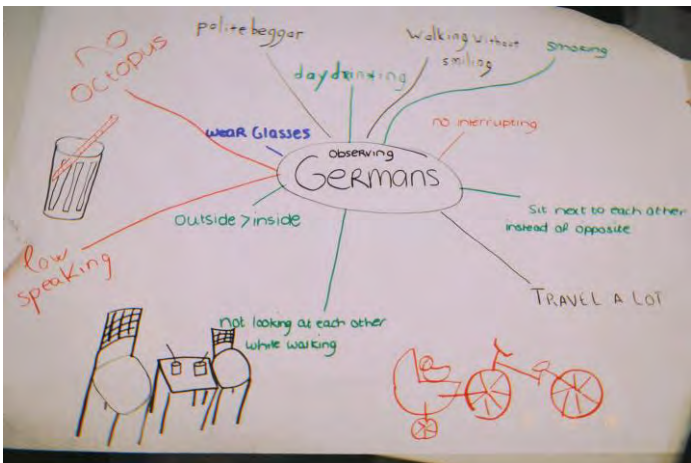 no
octopus
polite beggar
day drinking
Walking without
smiling
smoking
wear Glasses
no interrupting
Observing
Germans
outside > inside
Sit next to each other
instead of opposite
low
speaking
TRAVEL A LOT
not looking at each other
while walking